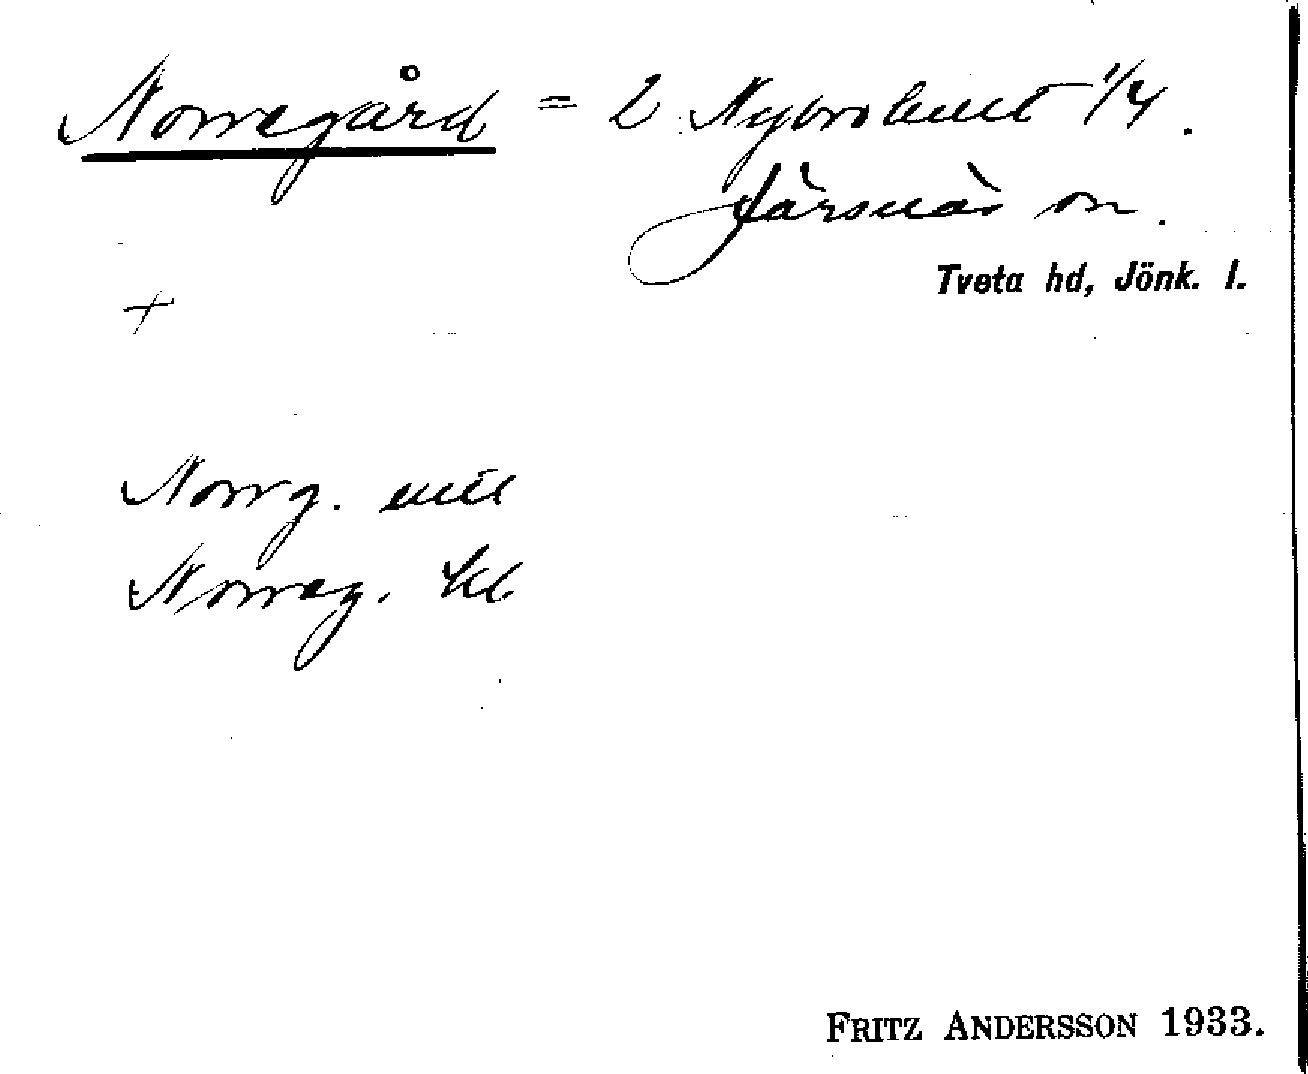 Norregård = 2 Nybrohult 1/4.
Järsnäs sn.
Tveta hd, Jönk. l.
+
Norrg.
Norreg. kl
FRITZ ANDERSSON 1933.